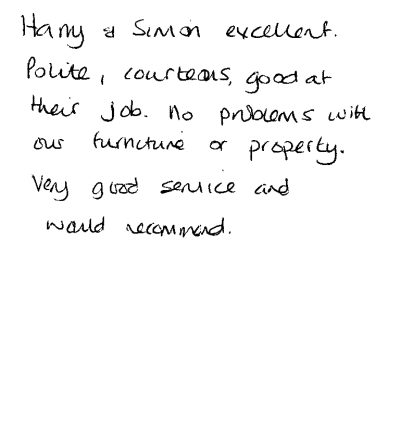 Harry & Simon excellent.
Polite, courteous, good at
their job. No problems with
our furniture or property.
Very good service and
would recommend.